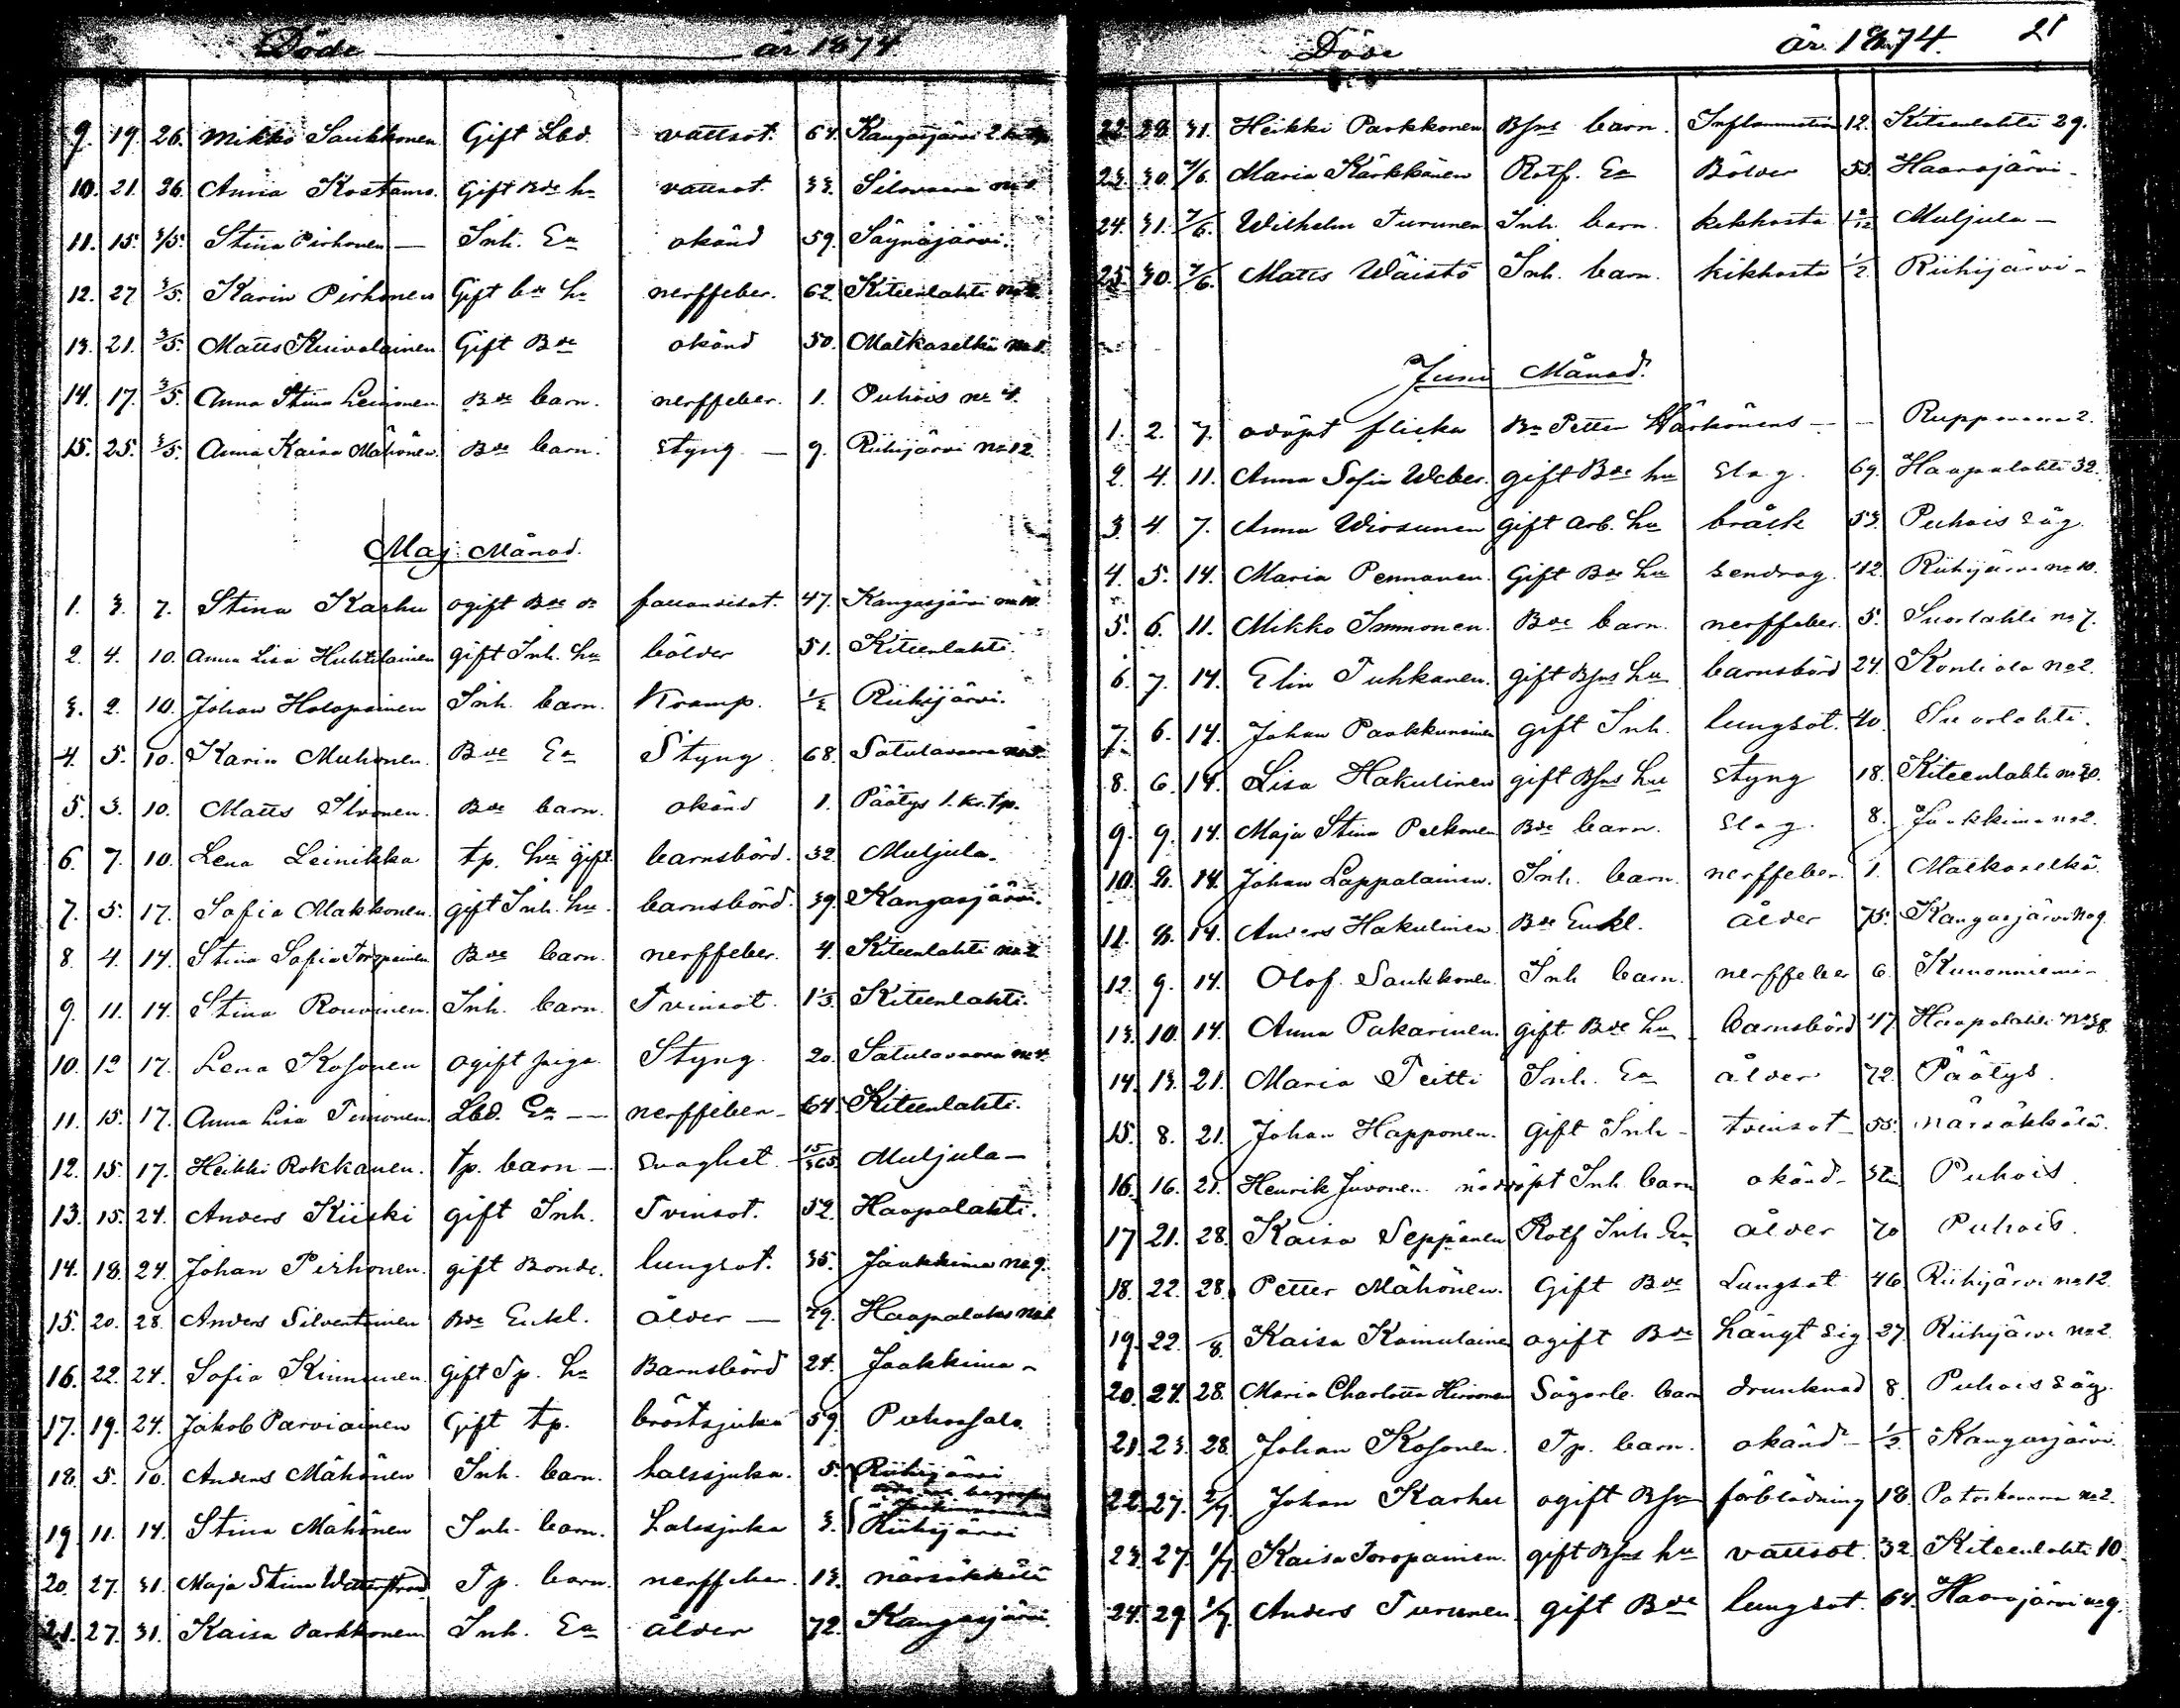 Döde år 1874
9. 19. 26. Mikko Saukkonen Gift Lbd. vattsot. 64. Kangasjärvi 2
10. 21. 26. Anna Kostamo. Gift Bde hu vattsot. 33. Silovaara no
11. 15. 3/5. Stina Pirhonen — Inh. Ea okänd 59. Säynäjärvi.
12. 27 3/5. Karin Pirhonen Gift bde hu nerffeber. 62. Kiteenlahti no
13. 21. 3/5. Matts Kuivalainen Gift Bde okänd 50. Matkaselkä no
14. 17. 3/5. Anna Stina Leinonen Bde barn. nerffeber. 1. Puhois no 4.
15. 25. 3/5. Anna Kaisa Mähönen. Bde barn. Styng — 9. Riihijärvi No 12
Maj Månad.
1. 3. 7. Stina Karhu ogift Bde dr fallandesot. 47. Kangasjärvi no 10.
2. 4. 10. Anna Lisa Huhtilainen gift Inh. hu bölder 51. Kiteenlahti.
3. 2. 10. Johan Holopainen Inh. barn. Kramp. 1/2 Riihijärvi.
4. 5. 10. Karin Muhonen. Bde Ea Styng 68. Satulavaara no
5. 3. 10. Matts Ilvonen. Bde barn. okänd 1. Päätys 1. kr. tp.
6. 7. 10. Lena Leinikka tp. hu gift barnsbörd. 32 Muljula.
7. 5. 17. Sofia Makkonen. gift Inh. hu barnsbörd. 39. Kangasjärvi.
8. 4. 14. Stina Sofia Toropainen Bde barn. nerffeber. 4. Kiteenlahti no 2
9. 11. 14. Stina Rouvinen. Inh. barn. Tvinsot. 1 1/3. Kiteenlahti.
10. 12 17. Lena Kosonen ogift piga Styng. 20. Satulavaara no 4.
11. 15. 17. Anna Lisa Timonen. Lbd. Ea — nerffeber — 64. Kiteenlahti.
12. 15. 17. Heikki Rokkanen. tp. barn — Svaghet 15/365 Muljula —
13. 15. 24. Anders Kiiski gift Inh. Tvinsot. 52. Haapalahti.
14. 18. 24. Johan Pirhonen. gift Bonde. lungsot. 35. Jaakkima no 9.
15. 20. 28. Anders Silventoinen Bde Enkl. ålder — 79. Haapalahti no
16. 22. 24. Sofia Kinnunen. gift Tp. hu Barnsbörd 24. Jaakkima —
17. 19. 24. Jakob Parviainen Gift tp. bröstsjuka 59. Puhossalo.
18. 5. 10. Anders Mähönen Inh. barn. halssjuka. 5. Riihijärvi
19 11. 14. Stina Mähönen Inh. barn. halssjuka 3. Riihijärvi
20. 27. 31. Maja Stina Tp. barn. nerffeber. 13. närsäkkälä
21. 27. 31. Kaisa Parkkonen Inh. Ea ålder 72. Kangasjärvi.
Döde år 1874. 21
22. 28. 31. Heikki Parkkonen Bsns barn. Inflammation 12. Kiteenlahti 29.
23. 30. 7/6. Maria Kärkkänen Rotf. Ea Bölder 55. Haarajärvi —
24. 31. 7/6. Wilhelm Turunen Inh. barn. kikhosta 1 2/12 Muljula —
25. 30. 7/6. Matts Wäistö Inh. barn. kikhosta 1/2. Riihijärvi —
Juni Månad.
1. 2. 7. odöpt flicka Bn Petter Härkönens — — Ruppovaara 2.
2. 4. 11. Anna Sofia Weber. gift Bde hu Slag. 69. Haapalahti 32.
3. 4. 7. Anna Wirsunen gift Arb. hu bråck 53. Puhois Såg.
4. 5. 14. Maria Pennanen. Gift Bde hu Sendrag. 42. Riihijärvi no 10.
5. 6. 11. Mikko Immonen. Bde barn. nerffeber. 5. Suorlahti no 7.
6. 7. 14. Elin Tuhkanen. gift Bsns hu barnsbörd 24. Kontiola no 2.
7. 6. 14. Johan Paakkunainen gift Inh. lungsot. 40. Suorlahti.
8. 6. 14. Lisa Hakulinen gift Bsns hu Styng 18. Kiteenlahti no 20.
9. 9. 14. Maja Stina Pelkonen Bde barn. Slag. 8. Jaakkima no 2.
10. 8. 14. Johan Lappalainen. Inh. barn. nerffeber. 1. Matkaselkä
11. 8. 14. Anders Hakulinen. Bde Enkl. ålder 75. Kangasjärvi No 9.
12. 9. 14. Olof Saukkonen. Inh barn. nerffeber 6. Kunonniemi —
13. 10. 14. Anna Pakarinen. gift Bde hu barnsbörd 47 Haapalahti No 38.
14. 13. 21. Maria Teitti Inh. Ea ålder 72. Päätys.
15. 8. 21. Johan Happonen. Gift Inh — tvinsot — 55. närsäkkälä.
16. 16. 21. Henrik Juvonen. nöddöpt Inh. barn okänd — Puhois.
17 21. 28. Kaisa Seppänen Rotf Inh. Ea ålder 70 Puhois.
18. 22. 28. Petter Mähönen. Gift Bde Lungsot 46 Riihijärvi no 12.
19. 22. 8. Kaisa Kaimulainen ogift Bde hängt sig 27. Riihijärvi no 2.
20. 24. 28. Maria Charlotta Hirvonen Sågarb. barn drunknad 8. Puhois Såg.
21. 23. 28. Johan Kosonen. Tp. barn. okänd — 1/2 Kangasjärvi
22. 27. 2/7. Johan Karhu ogift Bsn förblödning 18. Patsovaara no 2.
23. 27. 1/7. Kaisa Toropainen. gift Bsns hu vattsot. 32 Kiteenlahti 10.
24. 29. 1/7. Anders Turunen. gift Bde lungsot. 64. Haarajärvi no 9.